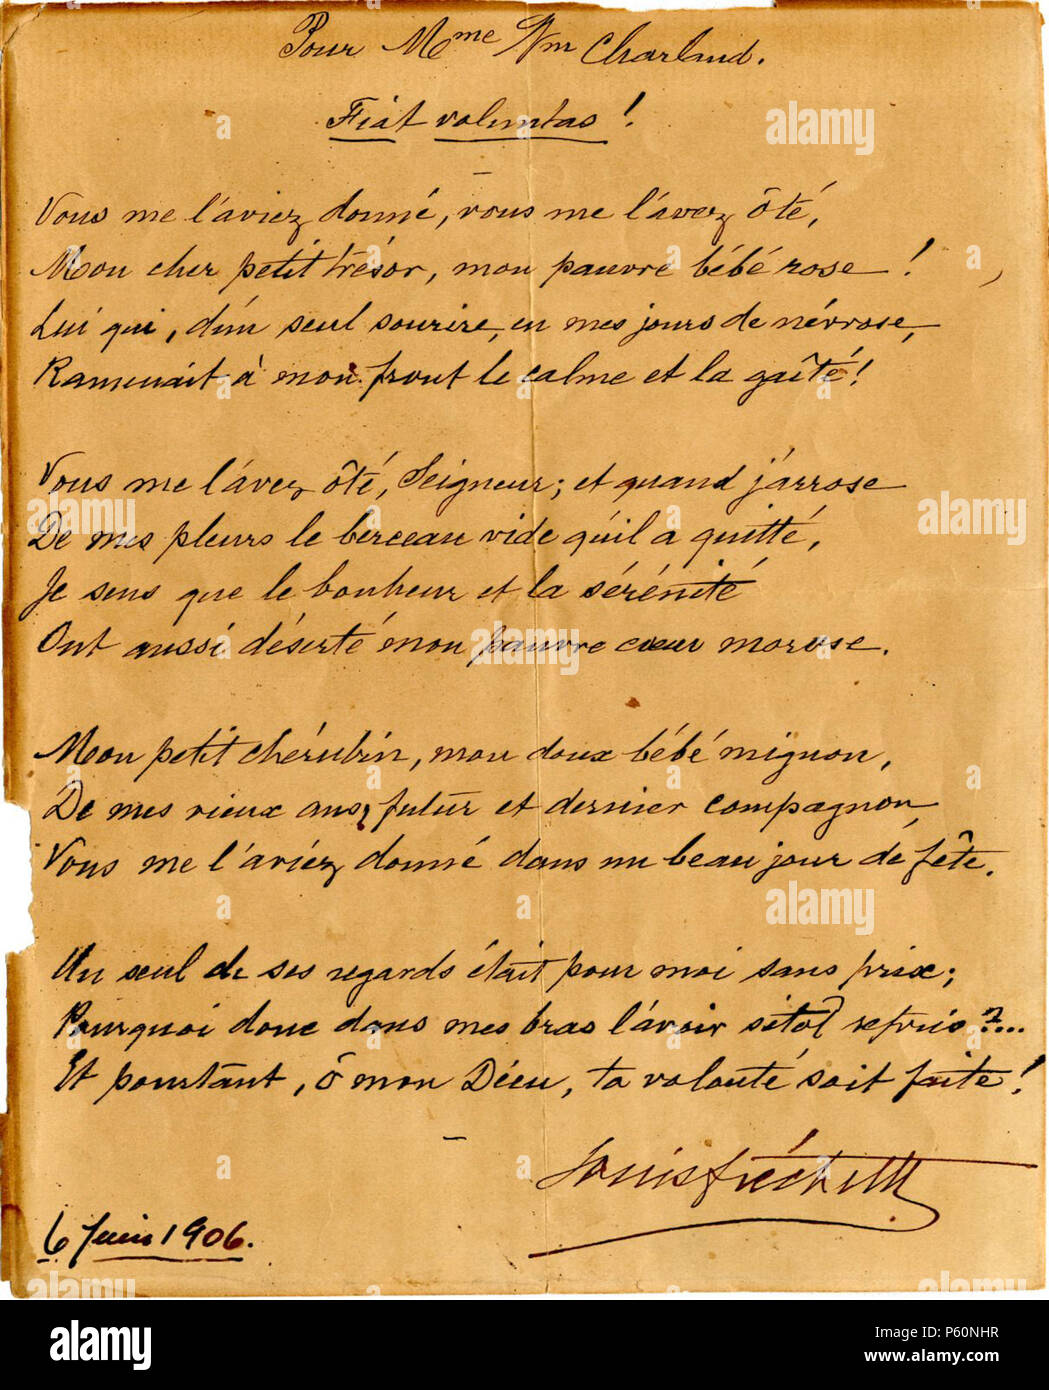 Pour Mme Wm Charland.
Fiat voluntas !
Vous me l'aviez donné, vous me l'avez ôté,
Mon cher petit trésor, mon pauvre bébé rose !
Lui qui, d'un seul sourire, en mes jours de névrose,
Ramenait à mon front le calme et la gaîté !
Vous me l'avez ôté, Seigneur ; et quand j'arrose
De mes pleurs le berceau vide qu'il a quitté,
Je sens que le bonheur et la sérénité
Ont aussi déserté mon pauvre cœur morose.
Mon petit chérubin, mon doux bébé mignon,
De mes vieux ans futur et dernier compagnon,
Vous me l'aviez donné dans un beau jour de fête.
Un seul de ses regards était pour moi sans prix ;
Pourquoi donc dans mes bras l'avoir sitôt repris ?...
Et pourtant, ô mon Dieu, ta volonté soit faite !
Louis Fréchette
6 Juin 1906.
a alamy
alamy
a
a
alamy
a
alamy
a
alamy
a
a
alamy
alamy
alamy
Image ID: P60NHR
www.alamy.com